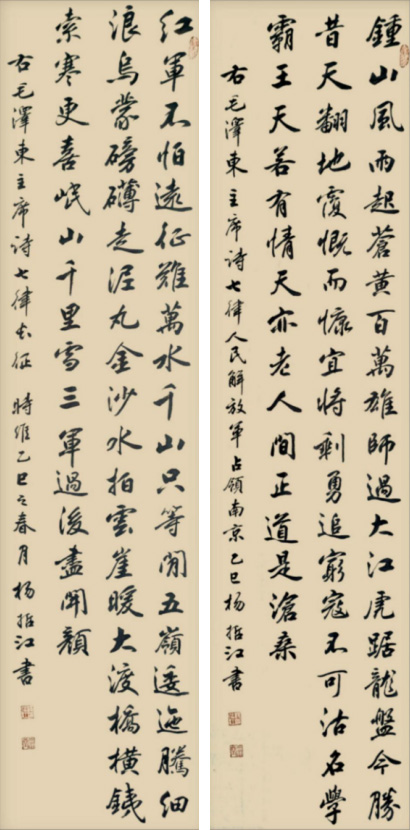 鍾山風雨起蒼黃百萬雄師過大江虎踞龍盤今勝
昔天翻地覆慨而慷宜將剩勇追窮寇不可沽名學
霸王天若有情天亦老人間正道是滄桑
右毛澤東主席詩七律人民解放軍占領南京乙巳杨哲江書
紅軍不怕遠征難萬水千山只等閒五嶺逶迤騰細
浪烏蒙磅礴走泥丸金沙水拍雲崖暖大渡橋橫鐵
索寒更喜岷山千里雪三軍過後盡開顏
右毛澤東主席詩七律長征 時維乙巳之春月杨哲江書